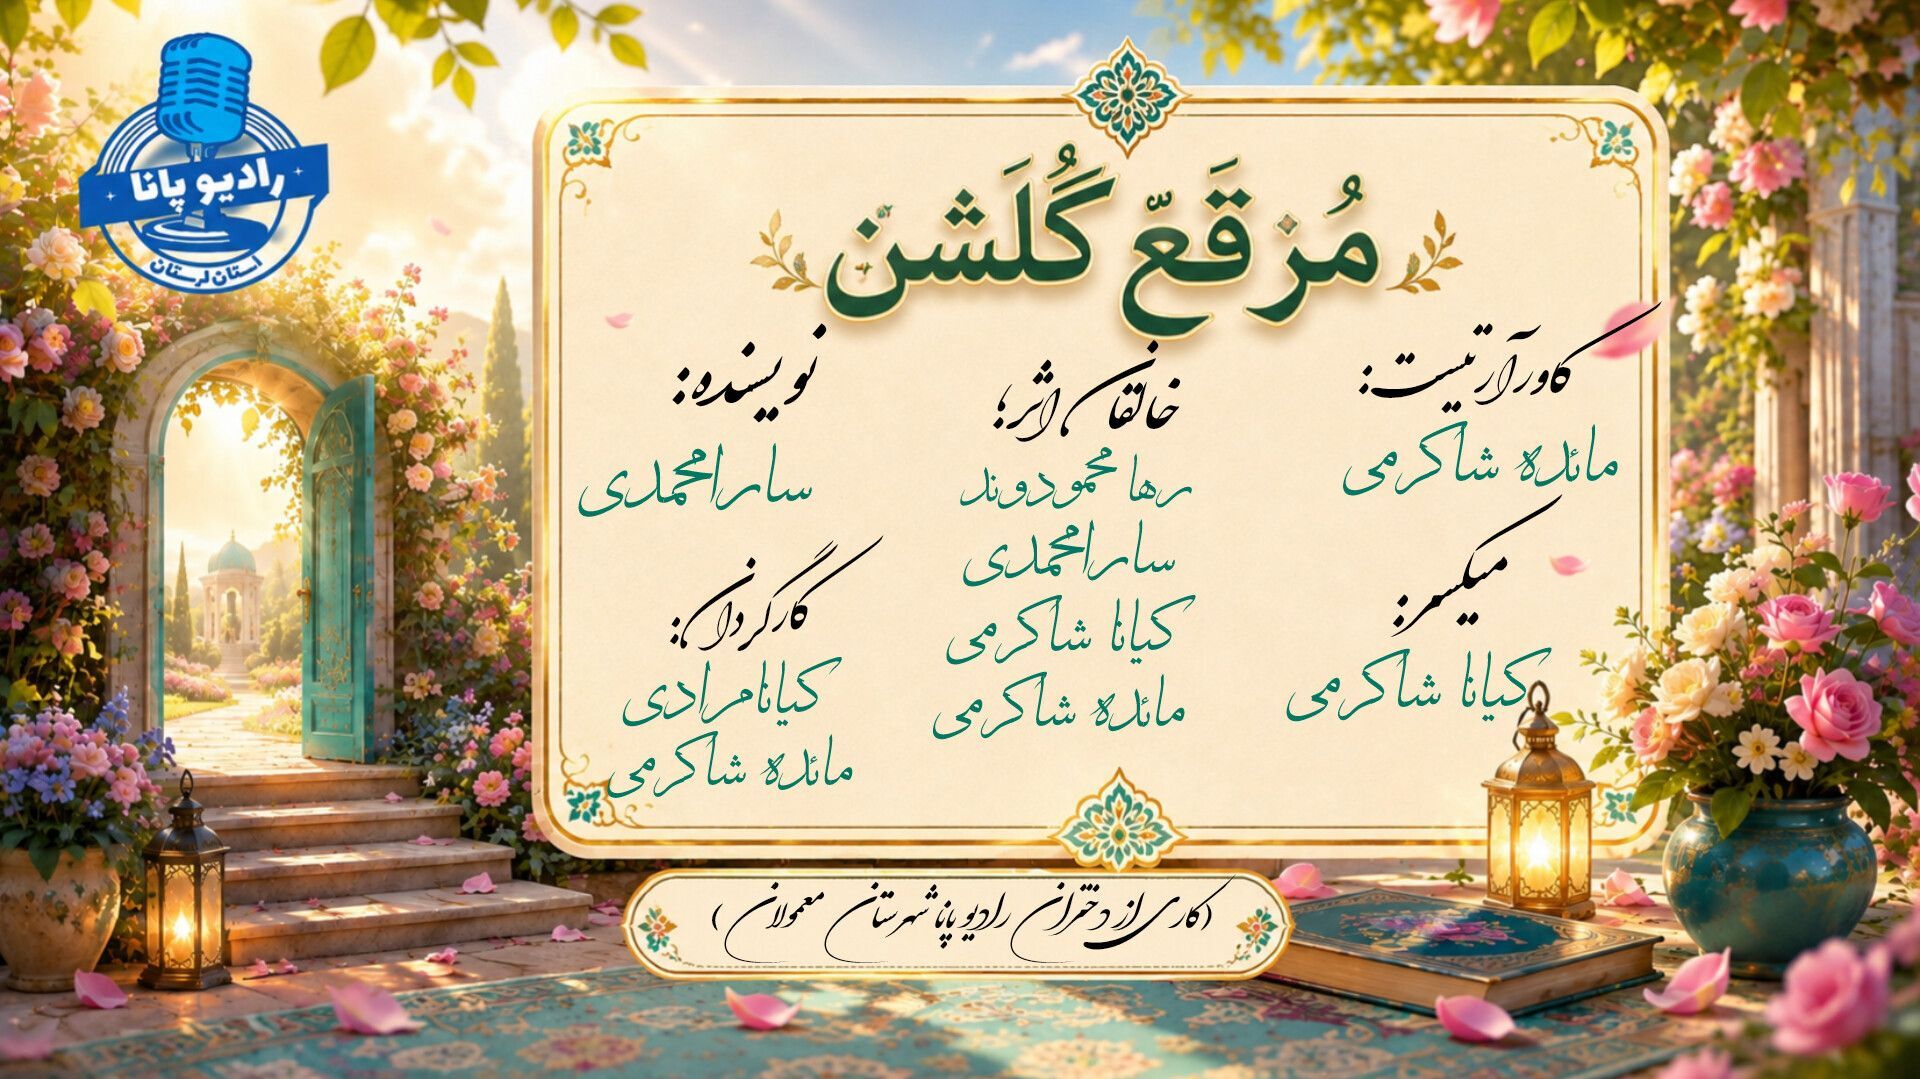 رادیو پانا
استان لرستان
مُرقَعّ گُلَشن
کاورآرتیست:
مائده شاکرمی
میکسر:
کیانا شاکرمی
خالقان اثر؛
رها محمودوند
سارامحمدی
کیانا شاکرمی
مائده شاکرمی
نویسنده:
سارامحمدی
کارگردان:
کیانامرادی
مائده شاکرمی
(کاری از دختران رادیو پانا شهرستان معمولان)